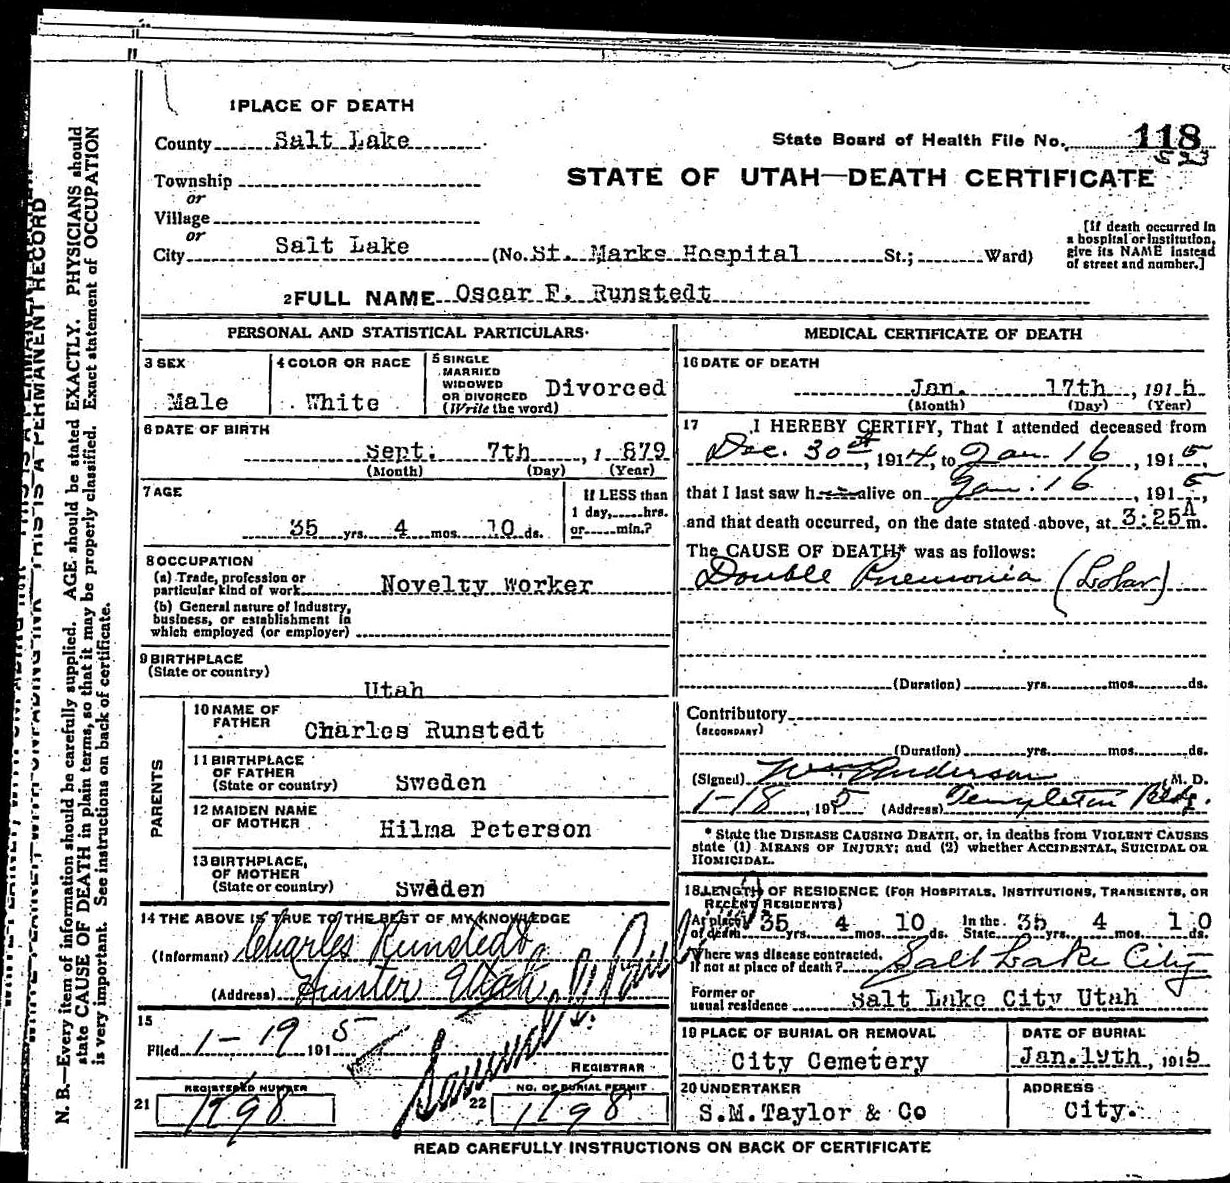 1 PLACE OF DEATH
County Salt Lake
State Board of Health File No. 118
Township
STATE OF UTAH—DEATH CERTIFICATE
or
Village
or
City Salt Lake (No. St. Marks Hospital St.; Ward)
[If death occurred in
a hospital or institution,
give its NAME instead
of street and number.]
2 FULL NAME Oscar F. Runstedt
PERSONAL AND STATISTICAL PARTICULARS
3 SEX
Male
4 COLOR OR RACE
White
5 SINGLE
MARRIED
WIDOWED
OR DIVORCED
(Write the word)
Divorced
6 DATE OF BIRTH
Sept. 7th, 1 879
(Month) (Day) (Year)
7 AGE
35 yrs. 4 mos. 10 ds.
If LESS than
1 day, hrs.
or min.?
8 OCCUPATION
(a) Trade, profession or
particular kind of work Novelty Worker
(b) General nature of industry,
business, or establishment in
which employed (or employer)
9 BIRTHPLACE
(State or country)
Utah
PARENTS
10 NAME OF
FATHER Charles Runstedt
11 BIRTHPLACE
OF FATHER
(State or country) Sweden
12 MAIDEN NAME
OF MOTHER Hilma Peterson
13 BIRTHPLACE,
OF MOTHER
(State or country) Sweden
14 THE ABOVE IS TRUE TO THE BEST OF MY KNOWLEDGE
(Informant) Charles Runstedt
(Address) Hunter Utah
15
Filed 1-19 1915
REGISTRAR
REGISTERED NUMBER
21 1298
NO. OF BURIAL PERMIT
22 1298
MEDICAL CERTIFICATE OF DEATH
16 DATE OF DEATH
Jan. 17th, 1915
(Month) (Day) (Year)
17 I HEREBY CERTIFY, That I attended deceased from
Dec. 30th, 1914, to Jan 16, 1915,
that I last saw h alive on Jan. 16, 1915,
and that death occurred, on the date stated above, at 3:25A m.
The CAUSE OF DEATH* was as follows:
Double Pneumonia (Lobar)
(Duration) yrs. mos. ds.
Contributory
(SECONDARY)
(Duration) yrs. mos. ds.
(Signed) Wm Anderson M. D.
1-18 1915 (Address) Templeton Bldg.
* State the DISEASE CAUSING DEATH, or, in deaths from VIOLENT CAUSES
state (1) MEANS OF INJURY; and (2) whether ACCIDENTAL, SUICIDAL OR
HOMICIDAL.
18 LENGTH OF RESIDENCE (FOR HOSPITALS, INSTITUTIONS, TRANSIENTS, OR
RECENT RESIDENTS)
At place
of death 35 yrs. 4 mos. 10 ds. In the State 35 yrs. 4 mos. 10 ds.
Where was disease contracted,
If not at place of death? Salt Lake City
Former or
usual residence Salt Lake City Utah
19 PLACE OF BURIAL OR REMOVAL
City Cemetery
DATE OF BURIAL
Jan. 19th, 1915
20 UNDERTAKER
S.M. Taylor & Co
ADDRESS
City.
READ CAREFULLY INSTRUCTIONS ON BACK OF CERTIFICATE
N. B.—Every item of information should be carefully supplied. AGE should be stated EXACTLY. PHYSICIANS should
state CAUSE OF DEATH in plain terms, so that it may be properly classified. Exact statement of OCCUPATION
is very important. See instructions on back of certificate.
WRITE PLAINLY WITH UNFADING INK—THIS IS A PERMANENT RECORD